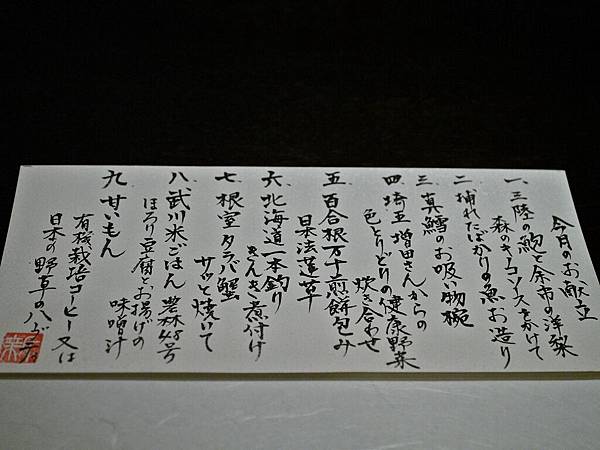 今月のお献立
一、三陸の鮑と余市の洋梨
森のキノコソースをかけて
二、捕れたばかりの魚お造り
三、真鱈のお吸い物椀
四、埼玉 増田さんからの
色とりどりの健康野菜
炊き合わせ
五、百合根万十煎餅包み
日本法蓮草
六、北海道一本釣り
きんき煮付け
七、根室タラバ蟹
サッと焼いて
八、武川米ごはん 農林48号
ほろり豆腐とお揚げの
味噌汁
九、甘いもん
有機栽培コーヒー又は
日本の野草のハーブティ